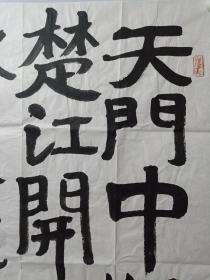 天門中
楚江開